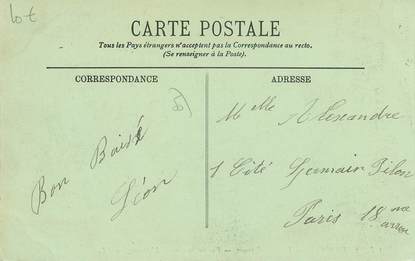 10 €
CARTE POSTALE
Tous les Pays étrangers n'acceptent pas la Correspondance au recto.
(Se renseigner à la Poste).
CORRESPONDANCE
Bon Baisé
Léon
ADRESSE
Melle Alexandre
1 Cité Germain Pilon
Paris 18me
arron